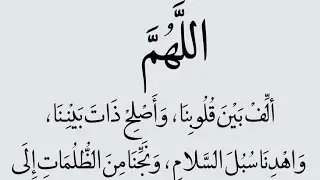 اللَّهُمَّ
أَلِّفْ بَيْنَ قُلُوبِنَا، وَأَصْلِحْ ذَاتَ بَيْنِنَا،
وَاهْدِنَا سُبُلَ السَّلَامِ، وَنَجِّنَا مِنَ الظُّلُمَاتِ إِلَى